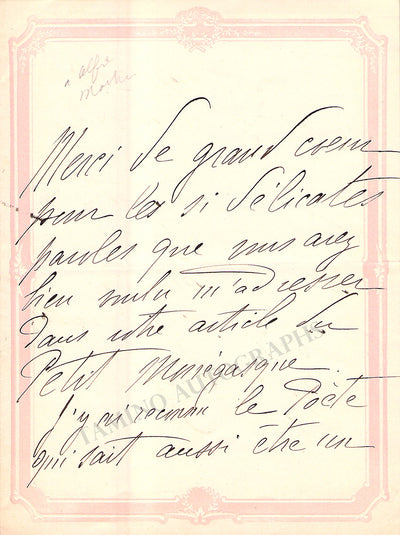 à Alfred
Merci de grand coeur
pour les si délicates
paroles que vous avez
bien voulu m'adresser
Dans votre article du
Petit Monégasque.
J'y ai reconnu le Poète
qui sait aussi être un
TAMINO AUTOGRAPHS